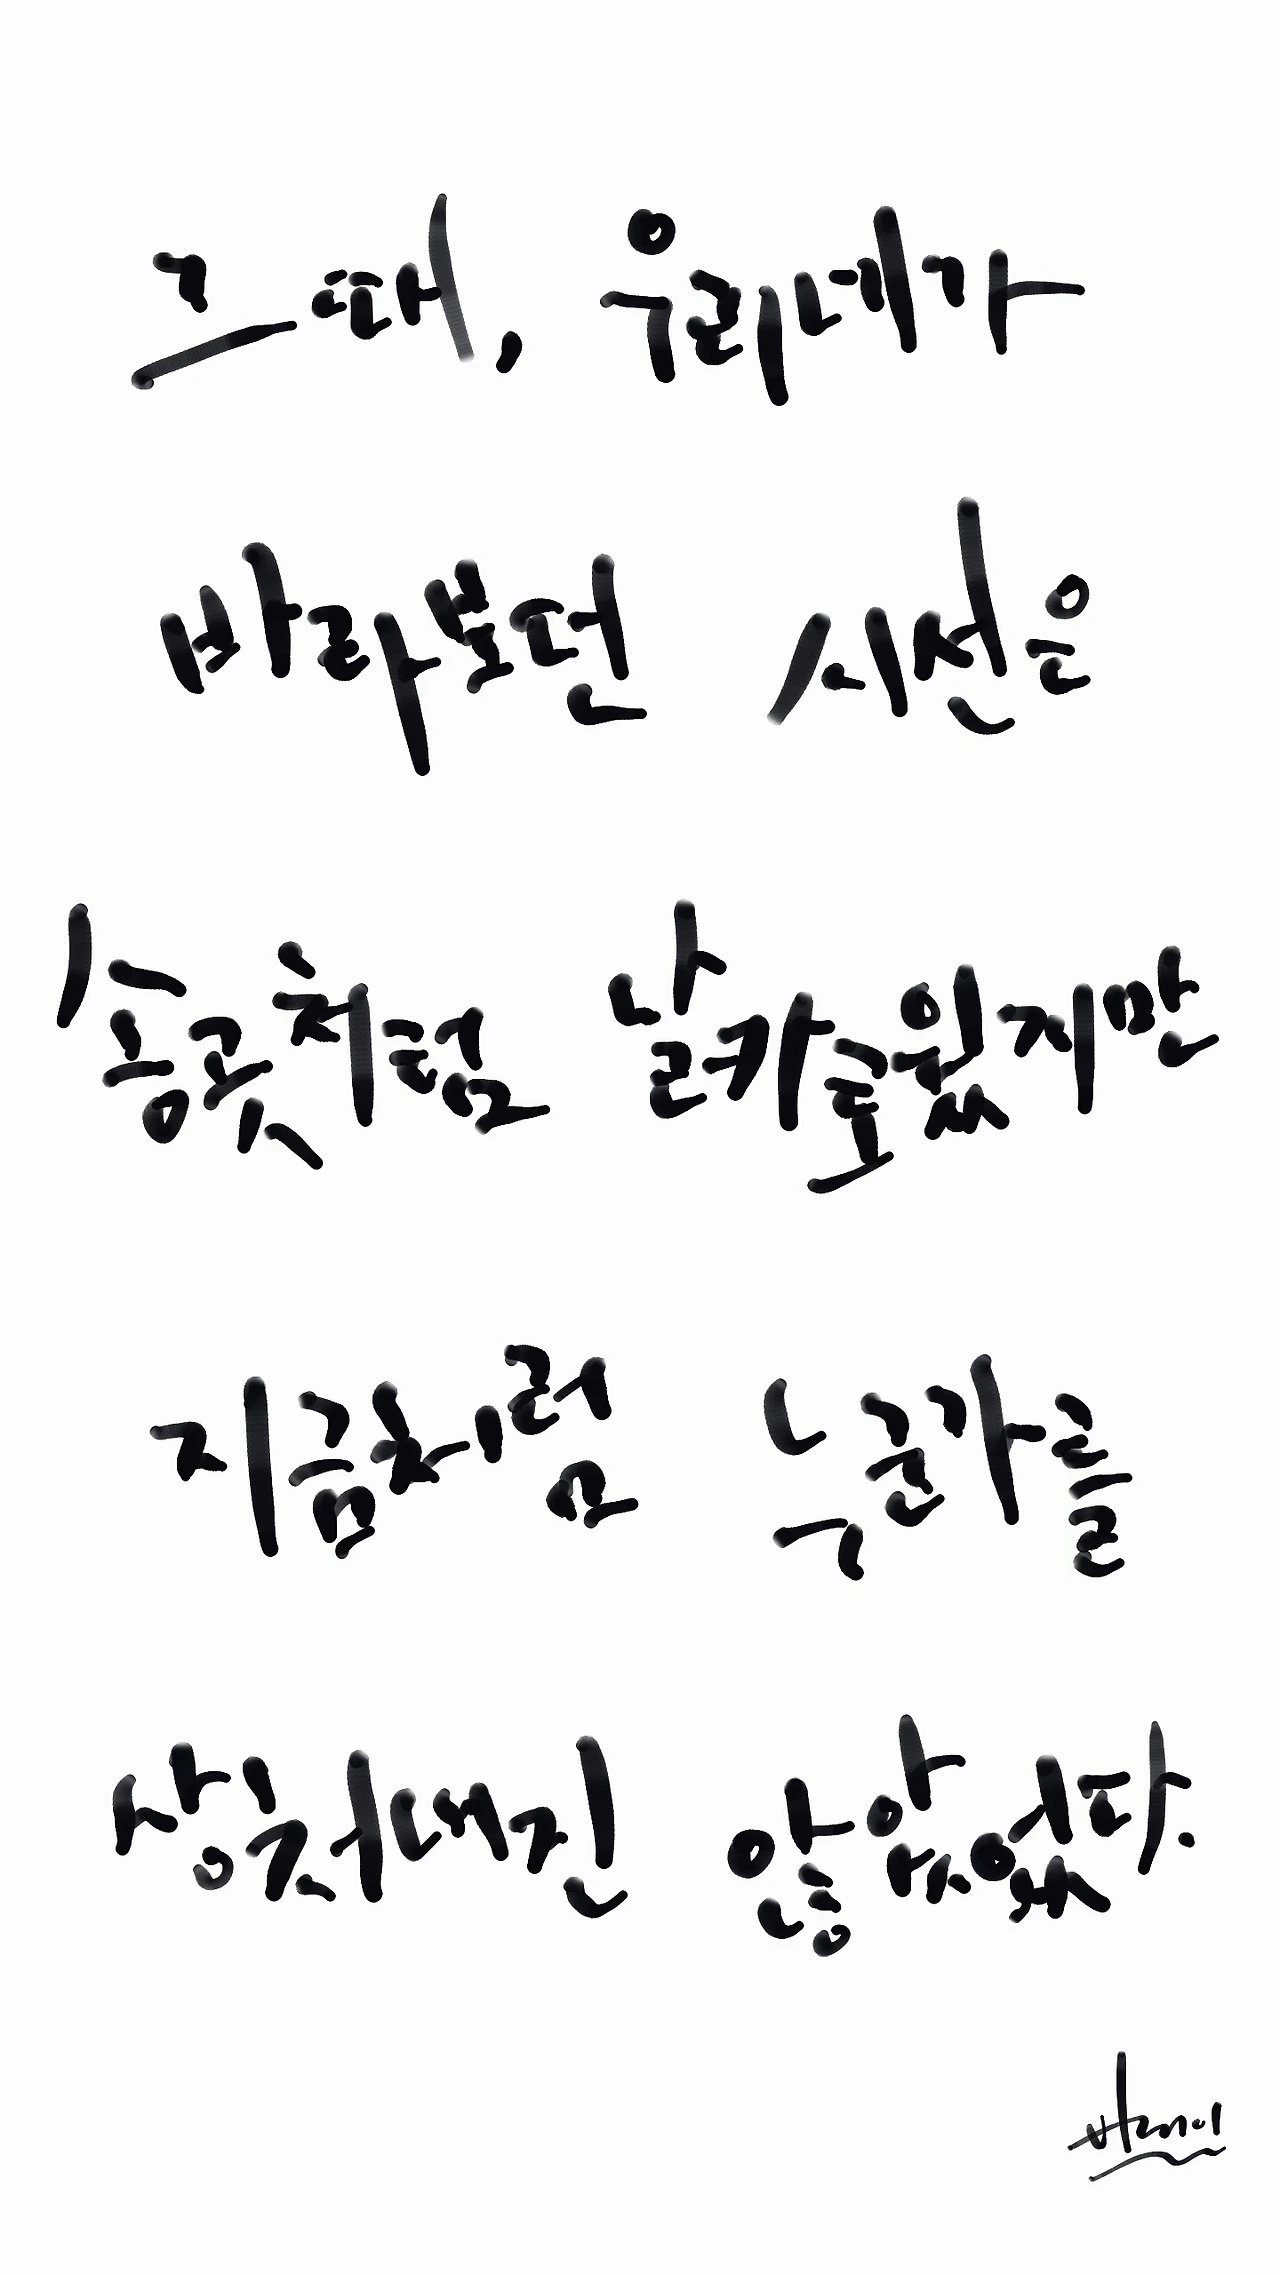 그 때, 우리네가
바라보던 시선은
송곳처럼 날카로웠지만
지금처럼 누군가를
상처내진 않았었다.